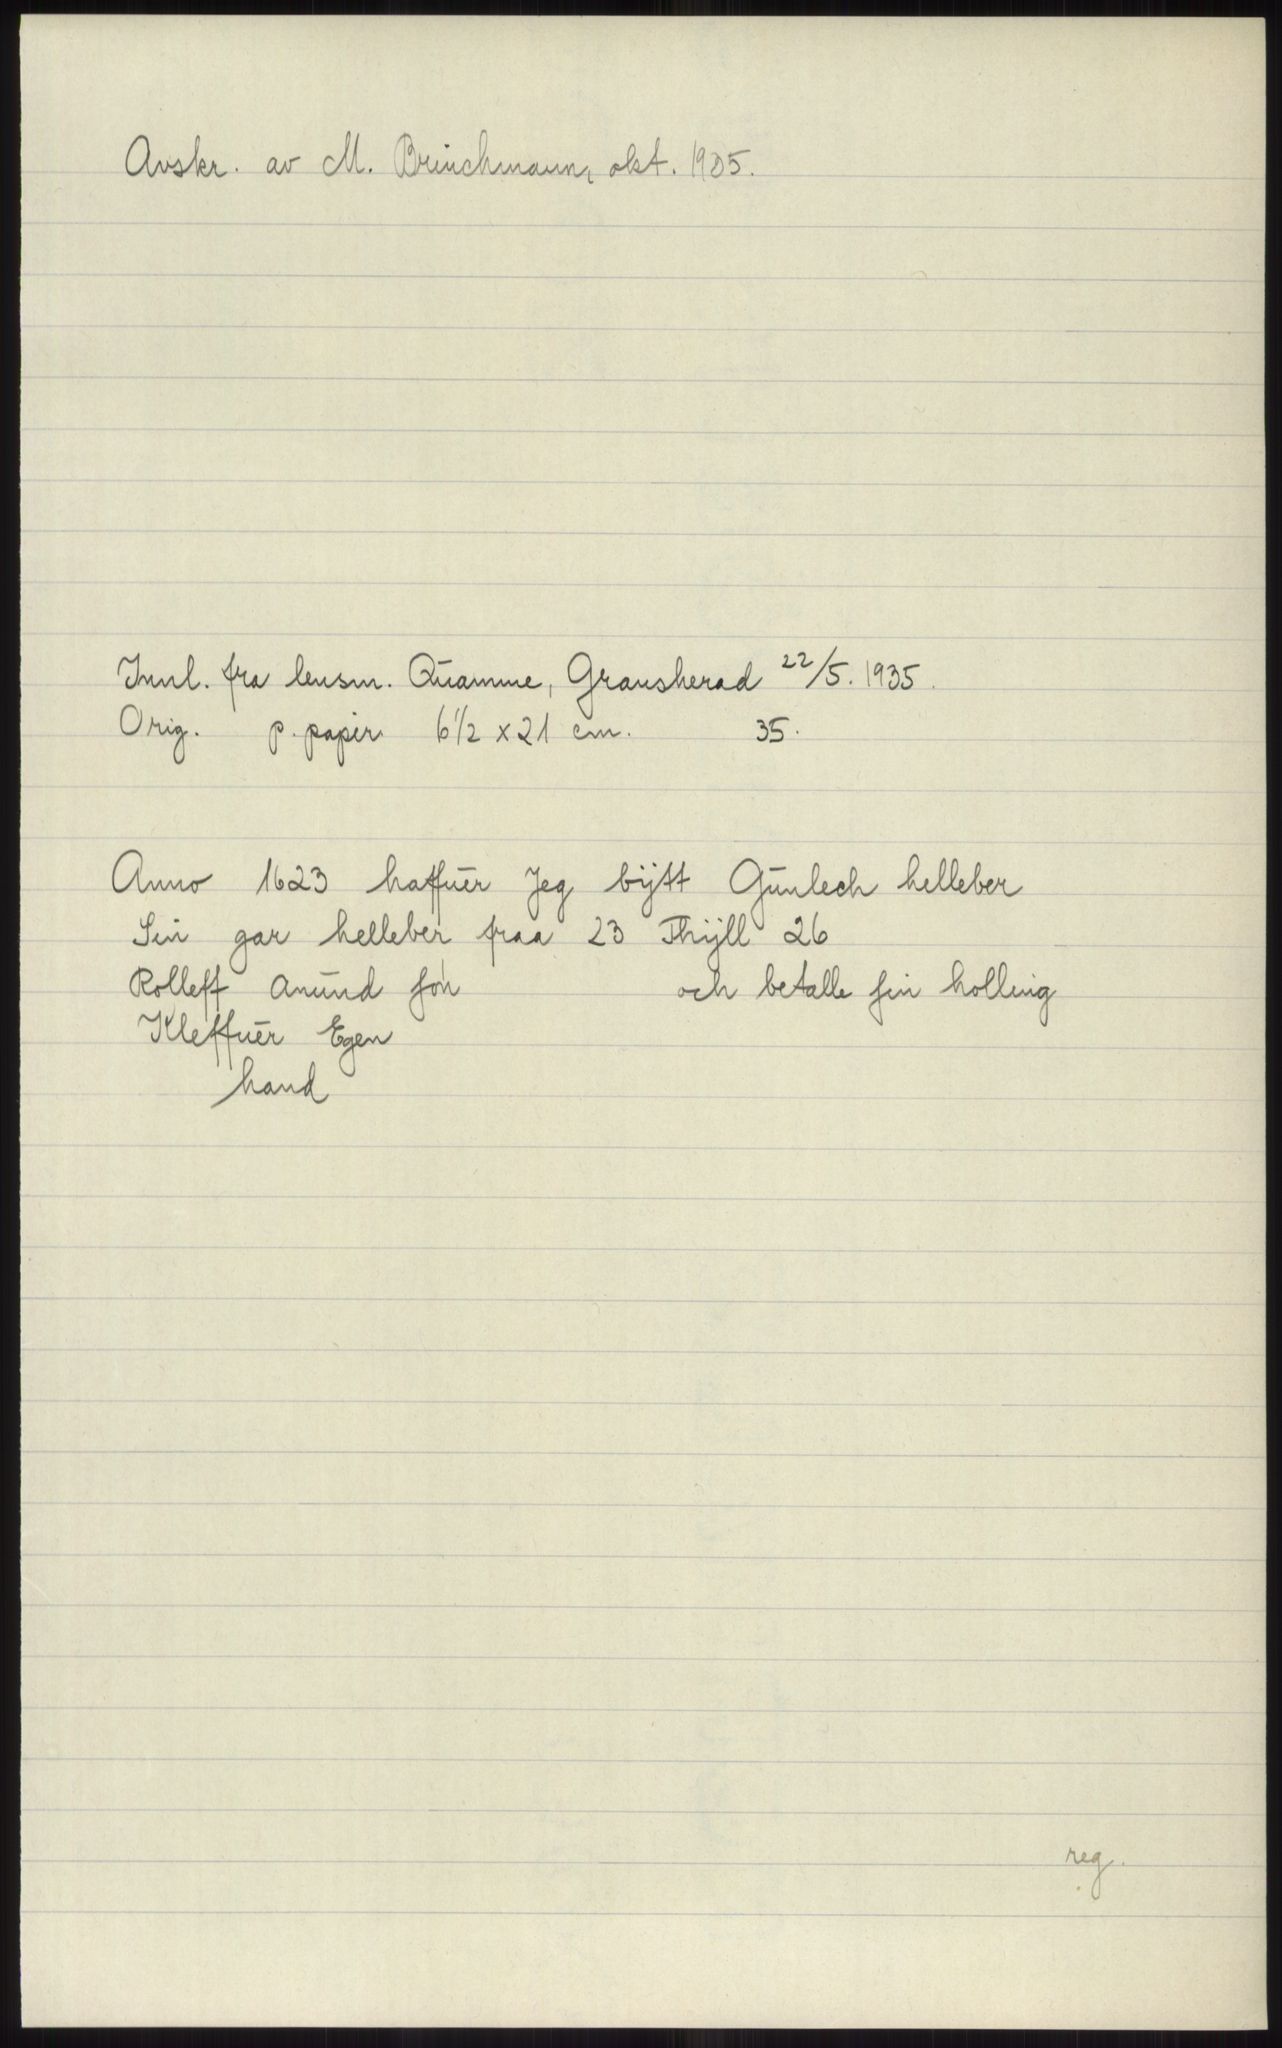 Avskr. av M. Brinchmann, okt. 1935.
Innl. fra lensm. Quamme, Gransherad 22/5. 1935.
Orig. p. papir 6 1/2 x 21 cm. 35.
Anno 1623 haffuer Jeg bÿtt Gunlech helleber
Sin gar helleber fraa 23 Thÿll 26
Rolleff Anund son och betalle sin holling
Kleffuer Egen
hand
reg.